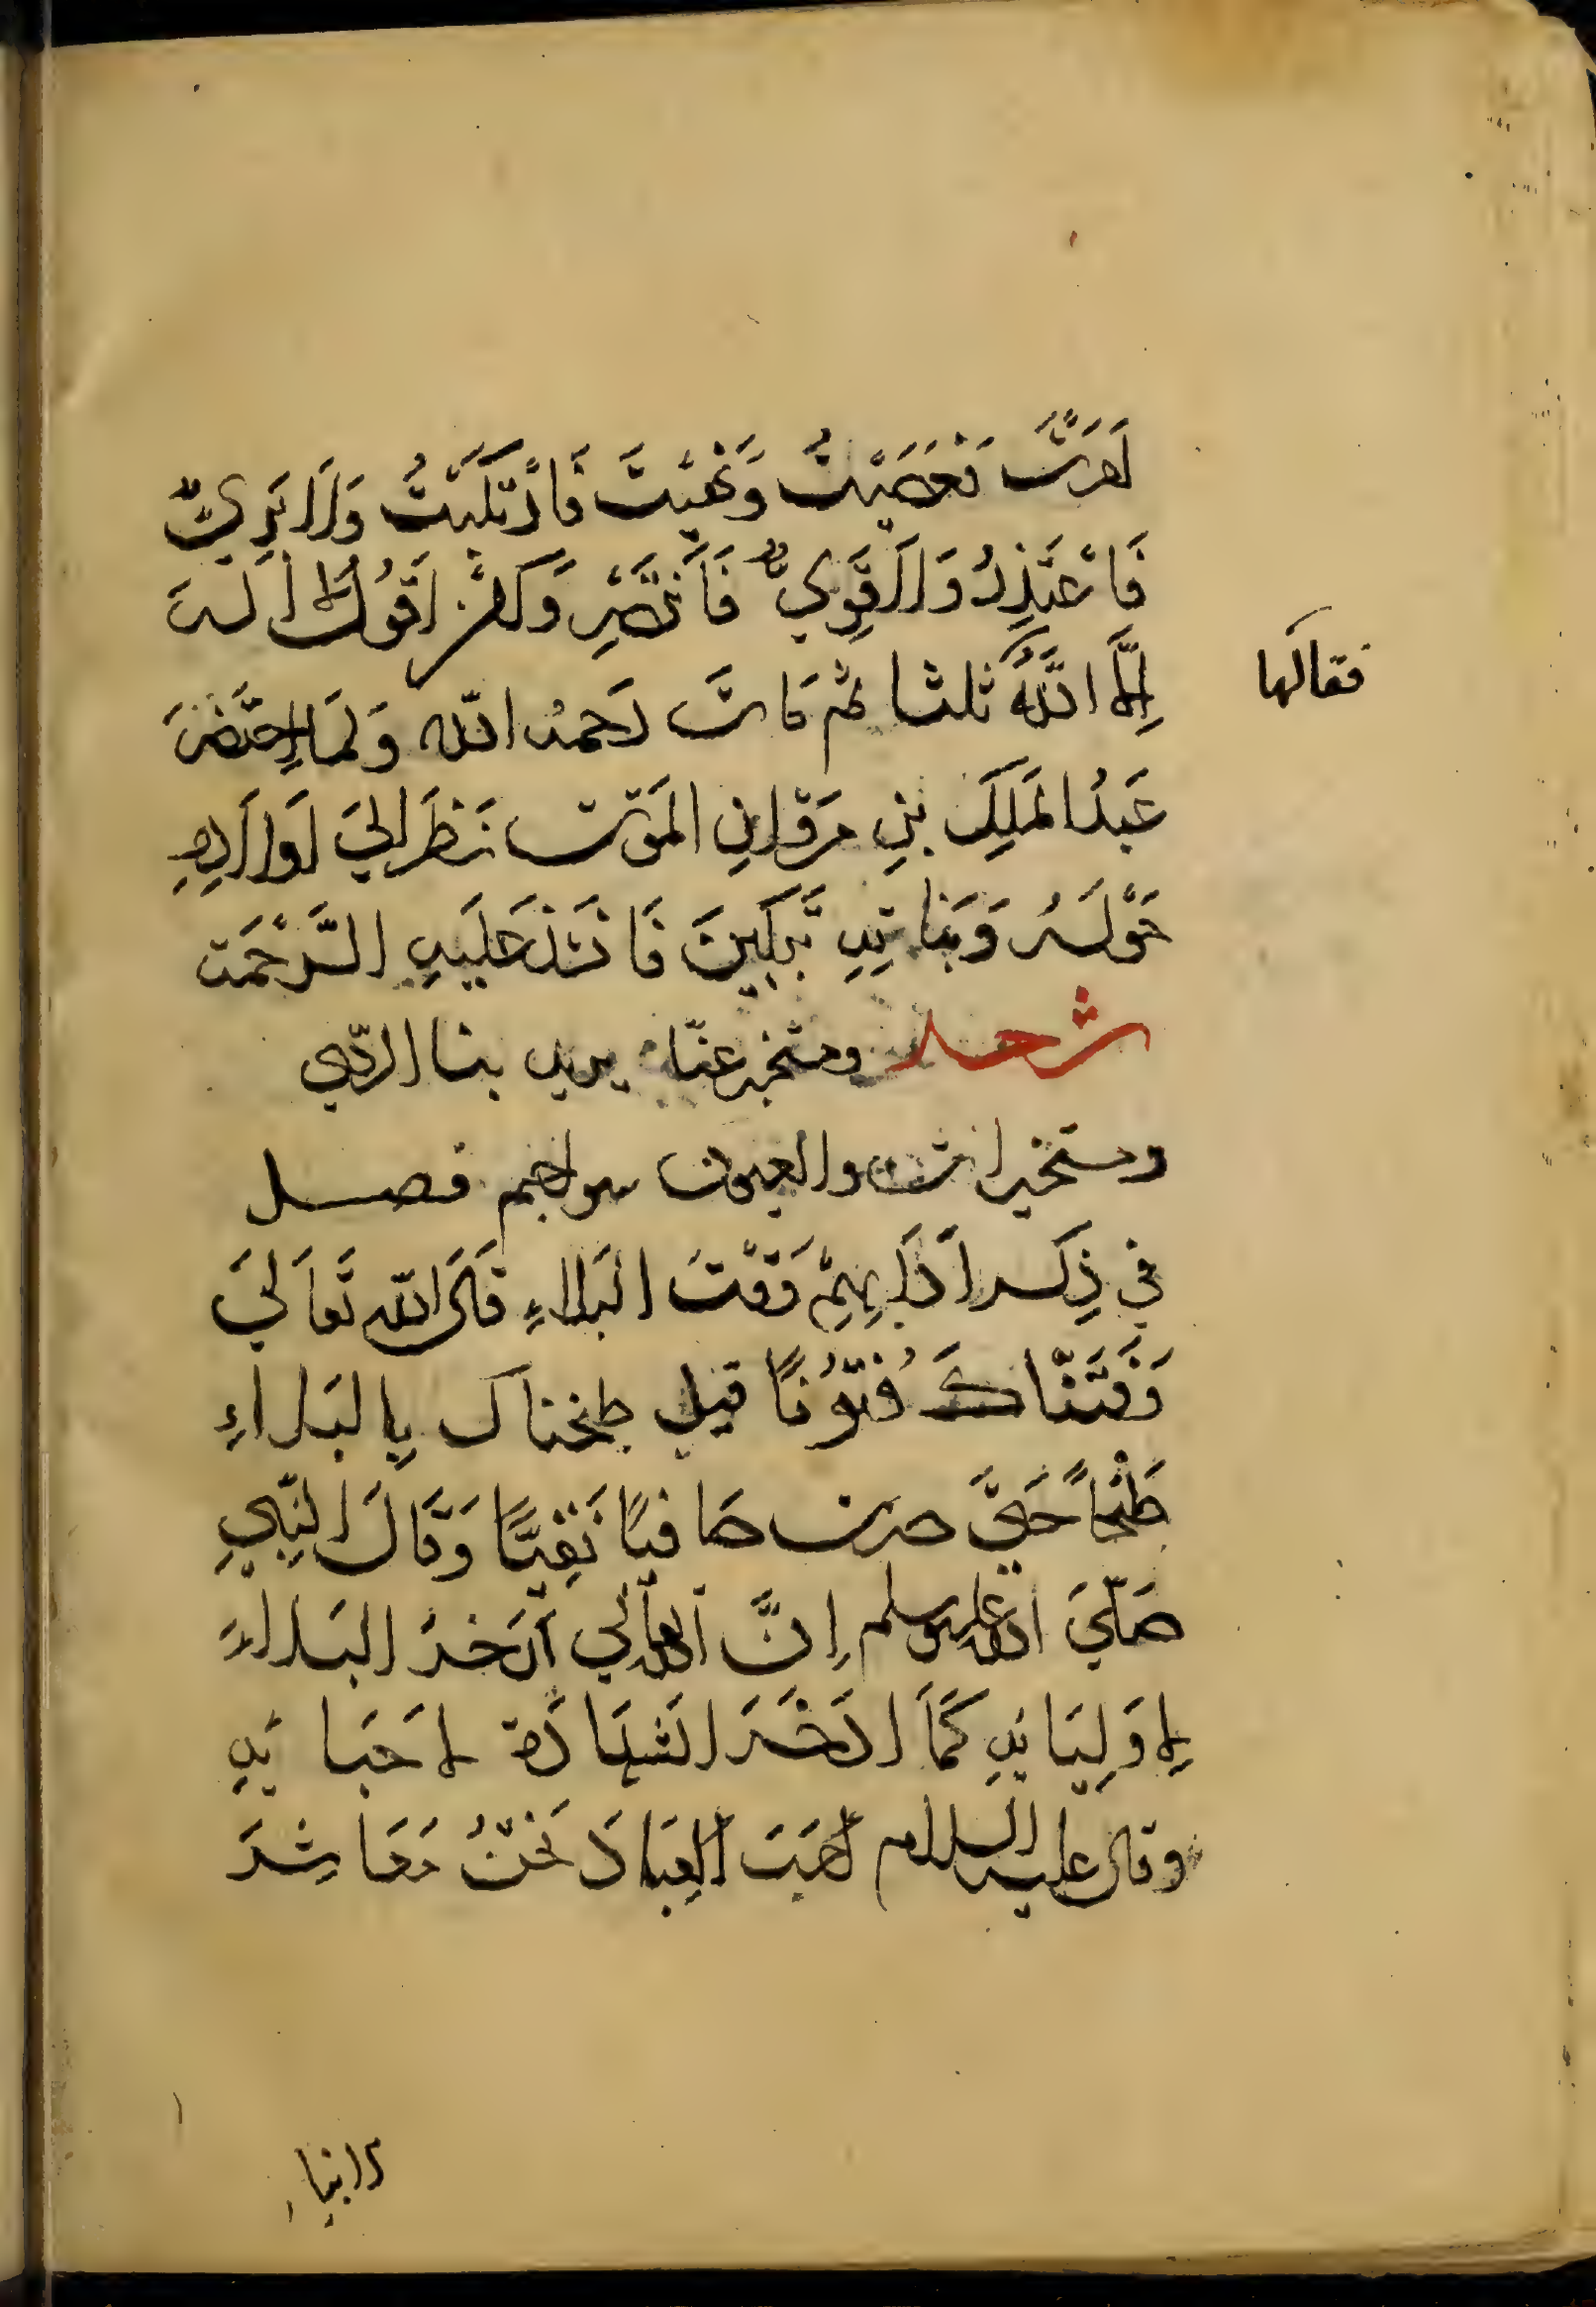 اَمَرْتَ فَعَصَيْتُ وَنَهَيْتَ فَارْتَكَبْتُ وَلَا بَرِيٌّ
فَاَعْتَذِرُ وَلَا قَوِيٌّ فَاَنْتَصِرُ وَلَكِنْ اَقُولُ لَا اِلَهَ
اِلَّا اللّٰهُ ثلثا ثم مَاتَ رَحمهُ الله وَلَمَا احْتَضَرَ
فقالها
عَبدُ المَلِكِ بنِ مَرْوَانِ المَوْتَ نَظَرَ اِلَي اَوْلَادِهِ
حَوْلَهُ وَبَنَاتِهِ تَبكِينَ فَانشَدَ عَلَيهِ الرَّحْمَة
شعر ومستخبر عنّا يريد بنا الردي
ومستخبرات والعيون سواجم فصل
في ذِكر اَدَابِهِمْ وَقْتَ البَلاءِ قَالَ الله تَعَالَي
وَفَتَنَّاكَ فُتُوْنًا قيل طبخناك بِالبَلاءِ
طَبْخًا حَتَّي صرت صَافيًا نَقِيًّا وَقَالَ النَّبِي
صَلّيَ الله عليه وسلم اِنَّ الله تعالي ادَخرَ البَلاءَ
لِاَوْلِيَايِهِ كَمَا ادَخَرَ الشهَادَة لِاحَبَايِهِ
وقال عليه السلام اهَبَ العِبَادَ نَحْنُ مَعَاشِرَ
الانبياء